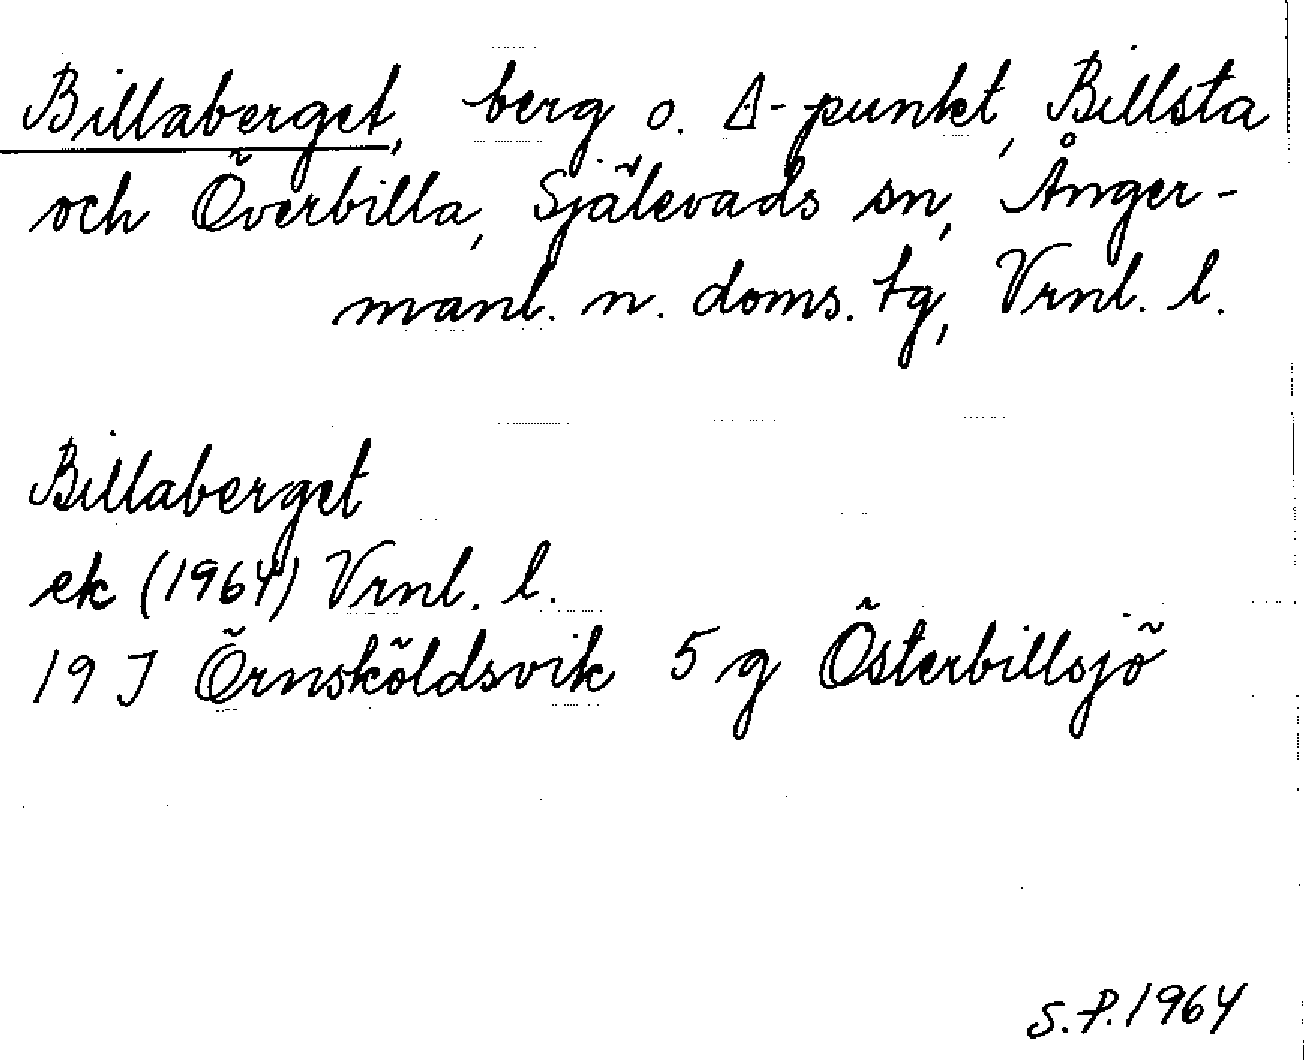 Billaberget, berg o. Δ-punkt, Billsta
och Överbilla, Själevads sn, Ånger-
manl. n. doms. tg, Vrnl. l.
Billaberget
ek (1964) Vrnl. l.
19 J Örnsköldsvik 5 g Österbillsjö
S.P.1964